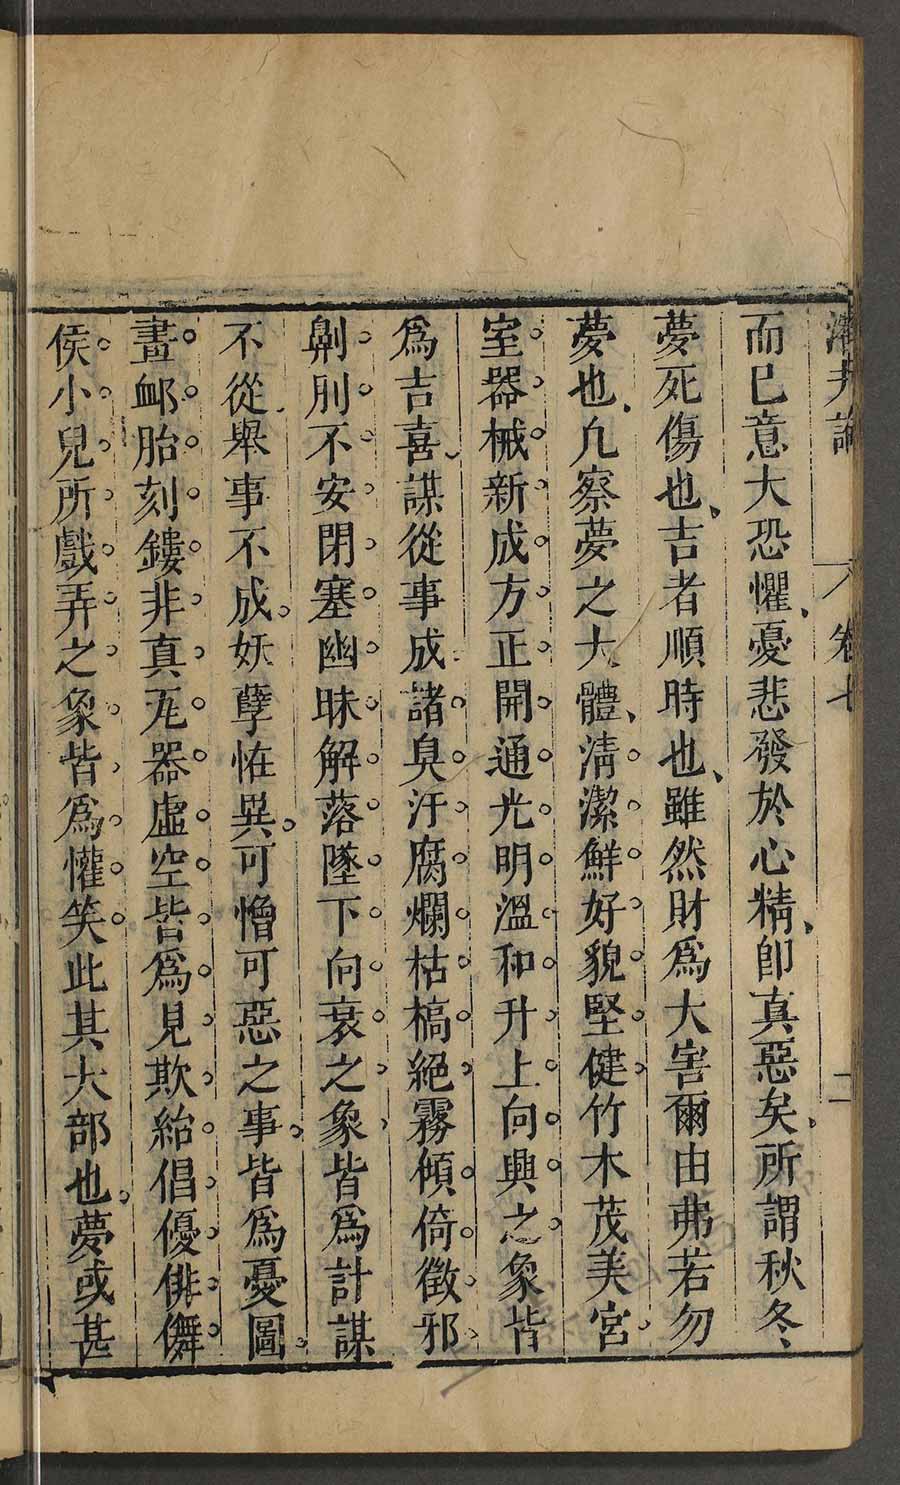 潛夫論 卷七 二
而巳意大恐懼憂悲發於心精卽真惡矣所謂秋冬
夢死傷也吉者順時也雖然財爲大害爾由弗若勿
夢也凢察夢之大體淸潔鮮好貌堅健竹木茂美宮
室器械新成方正開通光明溫和升上向興之象皆
爲吉喜謀從事成諸臭汙腐爛枯槁絕霧傾倚徵邪
劓刖不安閉塞幽昧解落墜下向衰之象皆爲計謀
不從舉事不成妖孽恠異可憎可惡之事皆爲憂圖
畫卹胎刻鏤非真瓦器虛空皆爲見欺紿倡優俳儛
侯小兒所戲弄之象皆爲懽笑此其大部也夢或甚